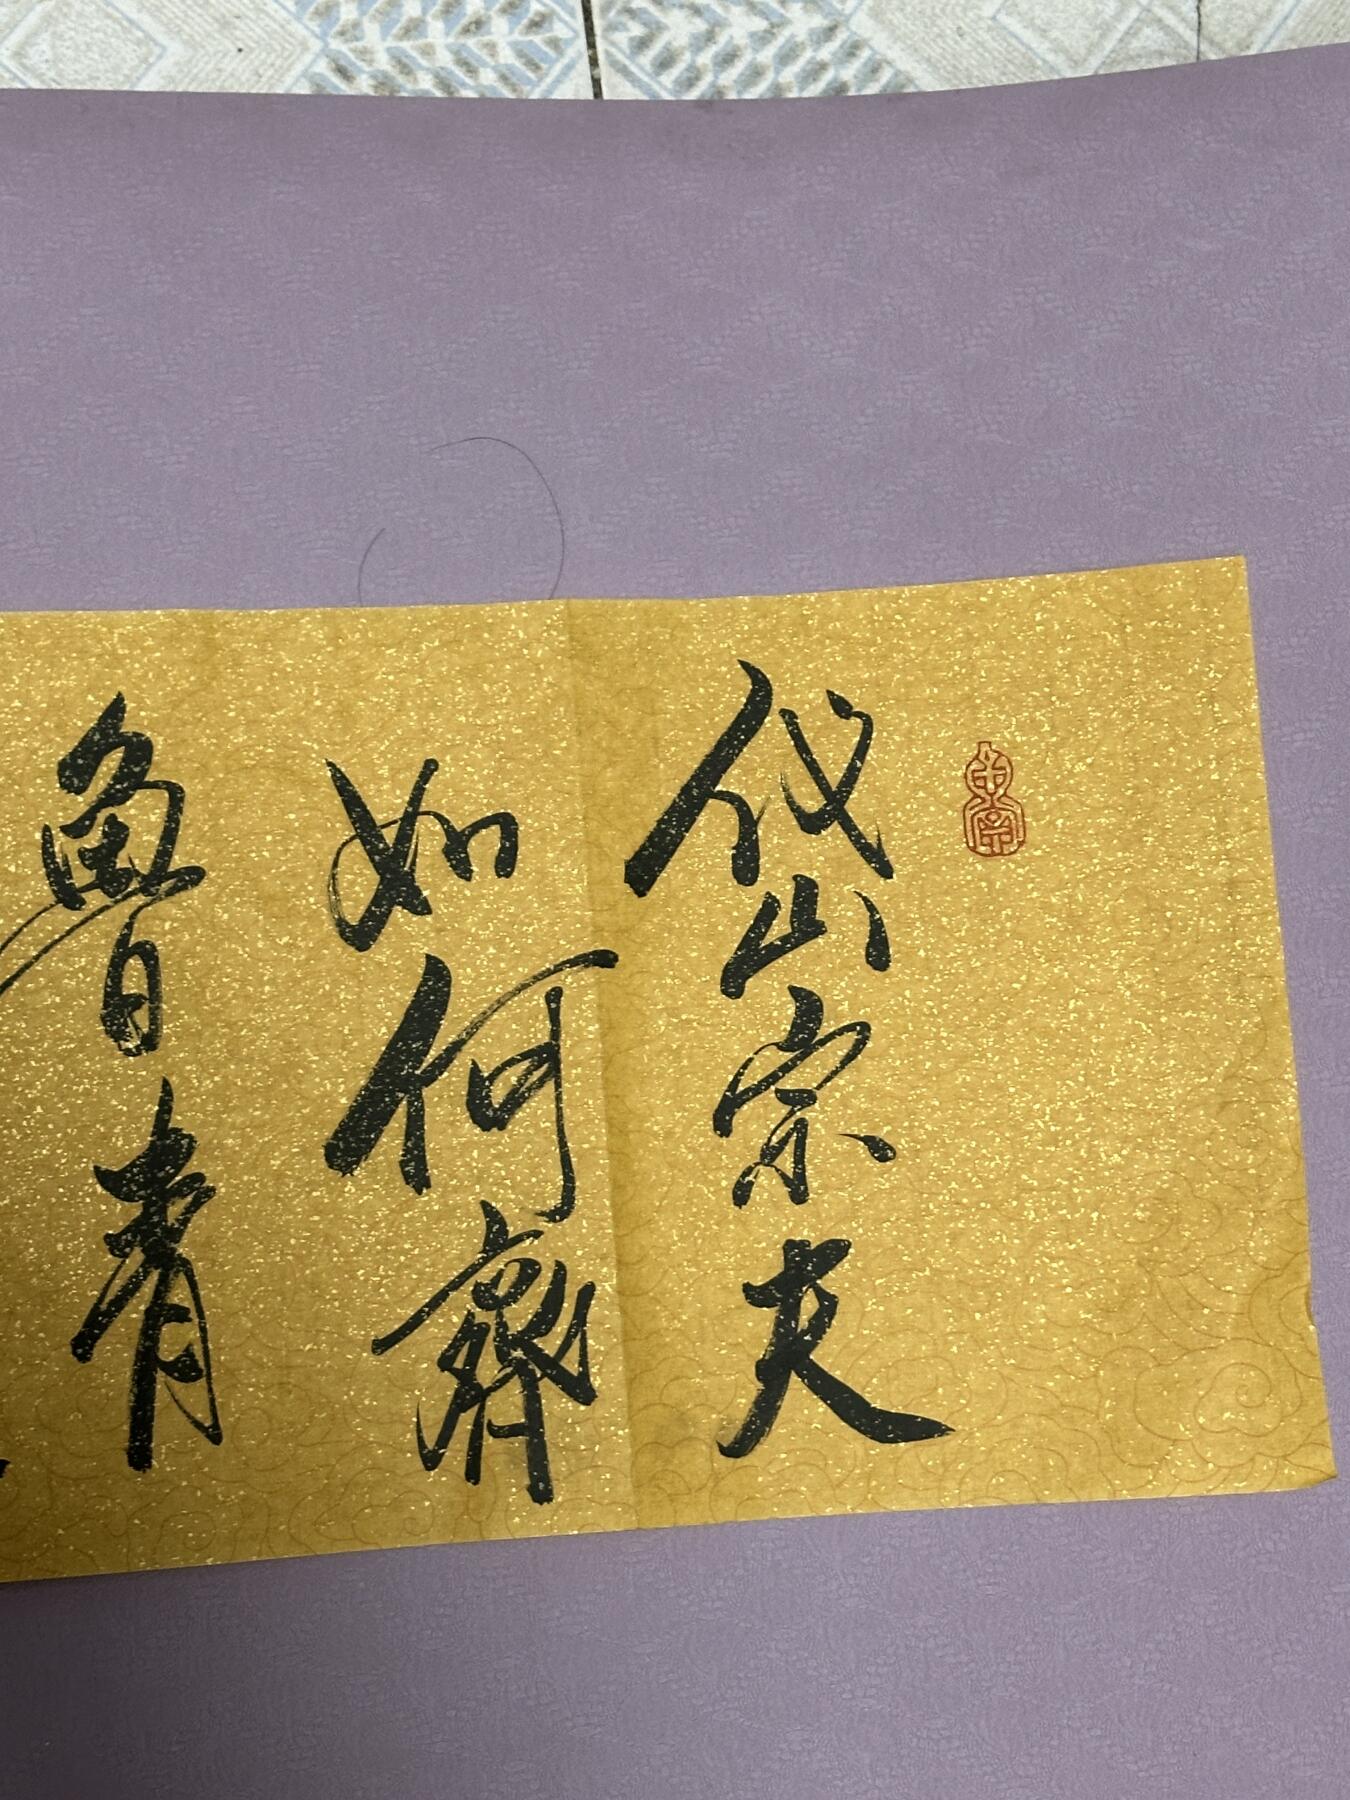 岱宗夫
如何齊
魯青